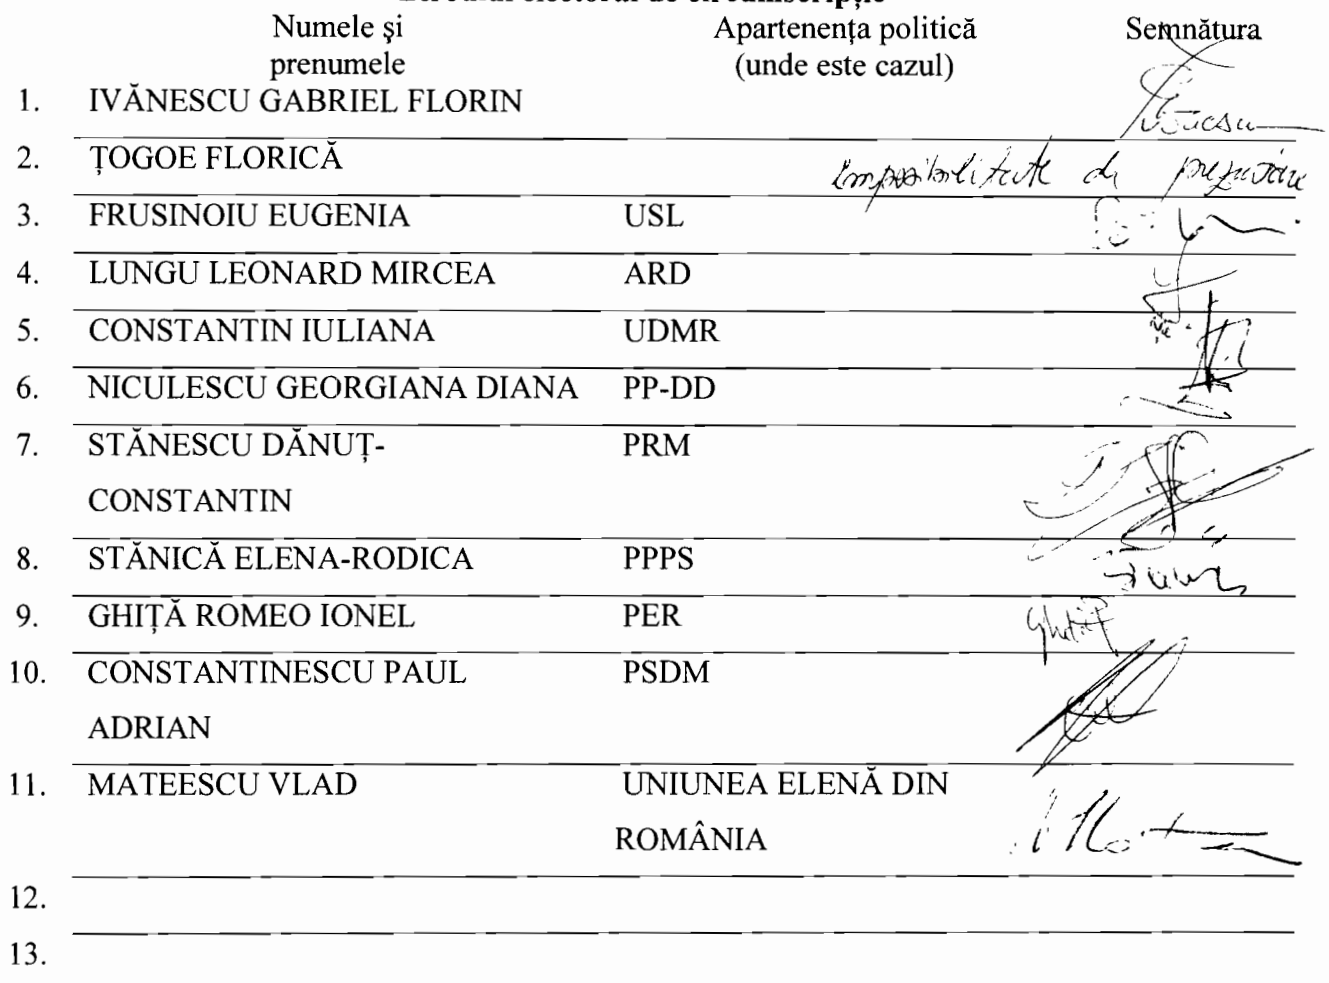 Numele și Apartenența politică Semnătura
prenumele (unde este cazul)
1. IVĂNESCU GABRIEL FLORIN
2. ȚOGOE FLORICĂ Imposibilitate de
3. FRUSINOIU EUGENIA USL
4. LUNGU LEONARD MIRCEA ARD
5. CONSTANTIN IULIANA UDMR
6. NICULESCU GEORGIANA DIANA PP-DD
7. STĂNESCU DĂNUȚ- PRM
CONSTANTIN
8. STĂNICĂ ELENA-RODICA PPPS
9. GHIȚĂ ROMEO IONEL PER
10. CONSTANTINESCU PAUL PSDM
ADRIAN
11. MATEESCU VLAD UNIUNEA ELENĂ DIN
ROMÂNIA
12.
13.